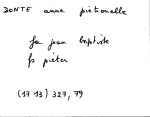 BONTE anne pietronelle
fa jean baptiste
fs pieter
(17 13) 327, 79